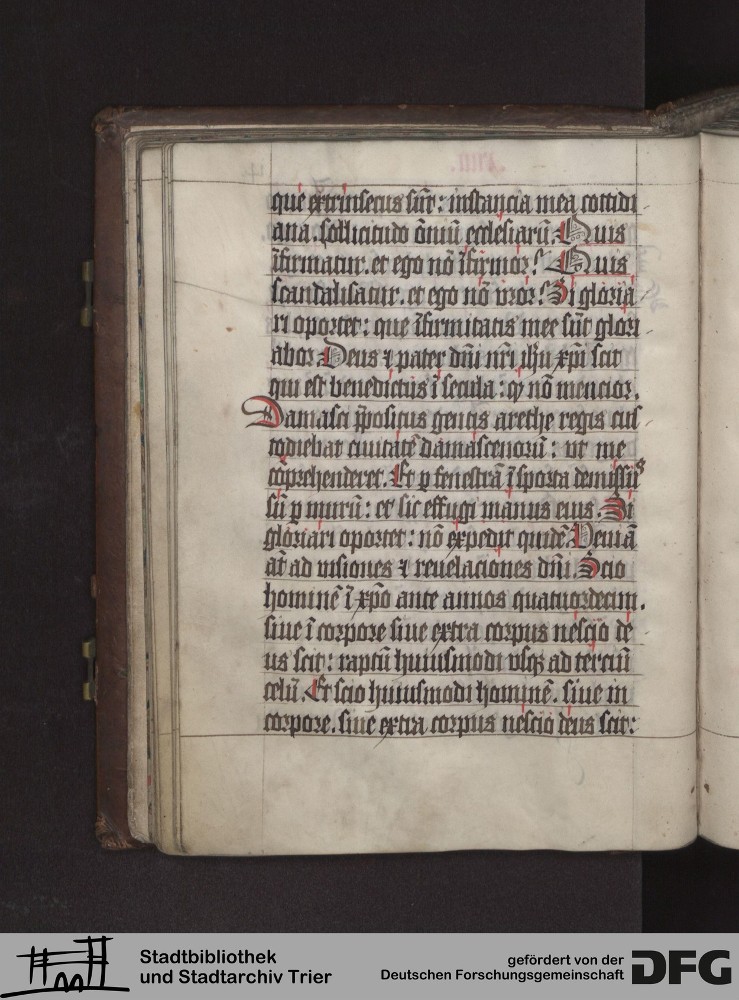 que extrinsecus sūt: instancia mea cottidi
ana. sollicitudo ōniū ecclesiarū. Quis
īfirmatur. et ego nō īfirmor? Quis
scandalisatur. et ego nō vror? Si gloria
ri oportet: que īfirmitatis mee sūt glori
abor Deus ⁊ pater dn̄i nr̄i ih̄u xp̄i scit
qui est benedictus ī secula: qꝫ nō mencior.
Damasci p̄positus gentis arethe regis cus
todiebat ciuitatē damascenorū: vt me
cōprehenderet. Et ꝑ fenestrā ī sporta demissꝰ
sū ꝑ murū: et sic effugi manus eius. Si
gloriari oportet: nō expedit quidē Veniā
at̄ ad visiones ⁊ reuelaciones dn̄i. Scio
hominē ī xp̄o ante annos quatuordecim.
siue ī corpore siue extra corpus nescio de
us scit: raptū huiusmodi vsqꝫ ad terciū
celū. Et scio huiusmodi hominē. siue in
corpore. siue extra corpus nescio deus scit:
Stadtbibliothek
und Stadtarchiv Trier
gefördert von der
Deutschen Forschungsgemeinschaft
DFG